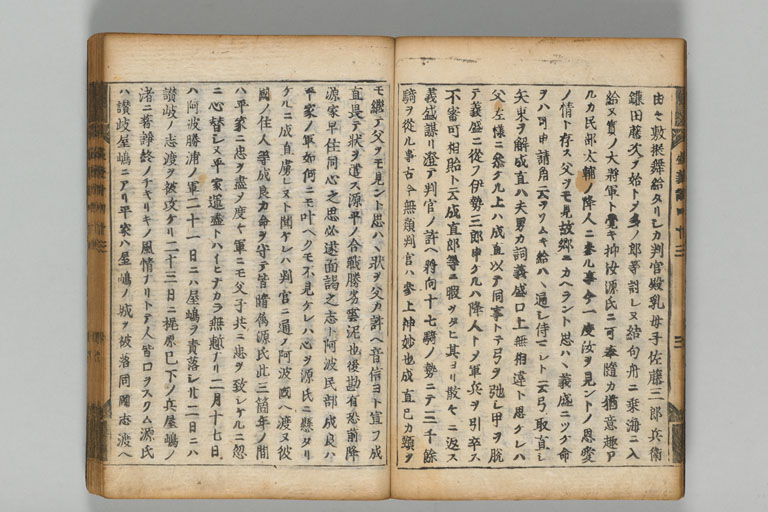 由セ敷振舞給タリシカ判官殿乳母子佐藤三郎兵衛
鎌田藤次ヲ始トメ多ノ郎等討レヌ結句舟ニ乗海ニ入
給ヌ賢ノ大将軍ト覚キ抑汝源氏ニ可奉随カ猶意趣
ルカ民部大輔ノ降人ニ参ル事今一度汝ヲ見ントノ恩愛
ノ情ト存ス父ヲモ見故郷ニカヘラント思ハヽ義盛ニツク命
ヲハ可申請角云ヲソムキ給ハヽ遁シ侍マシトテ弓取直シ
矢束ヲ解成直ハ夫男カ詞義盛口上無相違ト思ケレハ
父左様ニ参ケル上ハ成直以テ同事トテ弓ヲ弛シ甲ヲ脱
テ義盛ニ従フ伊勢三郎申ケルハ降人トノ軍兵ヲ引卒ス
不審可相貽ト云成直郎等ニ暇ヲタヒ其ヨリ散セニ返ス
義盛謀リ澄テ判官ノ許ヘ将向十七騎ノ勢ニテ三千余
騎ヲ従ル事古今無類判官ハ参上神妙也成直已カ頸ヲ
モ継テ父ヲモ見ント思ハヽ状ヲ父カ許ヘ音信ヨト宣フ成
直畏テ状ヲ遣ス源平ノ合戦勝劣雲泥也後勘有恐前降
源家早住同心之思必遂面謁之志ト阿波民部成良ハ
平家ノ軍如何ニモ叶ヘクモ不見ケレハ心ヲ源氏ニ懸タリ
ケルニ成直虜レヌト聞ケレハ判官ニ通ノ阿波国ヘ渡ヌ彼
国ノ住人等成良カ命ヲ守テ皆帰為源氏此三箇年ノ間
ハ平家ニ忠ヲ尽ヲ度々軍ニモ父子共ニ忠ヲ致シケルニ忽
ニ心替シヌ平家運尽トハイヒナカラ無慙ナリ二月十七日
ハ阿波勝浦ノ軍二十一日ニハ屋嶋ヲ責落シ廿二日ニハ
讃岐ノ志渡ヲ被攻ケリ二十三日ニ梶原已下ノ兵屋嶋ノ
渚ニ着諍終ノチキリキノ風情ナリトテ人皆口ヲスクム源氏
ハ讃岐屋嶋ニアリ平家ハ屋嶋ノ城ヲ被落同国志渡ヘ